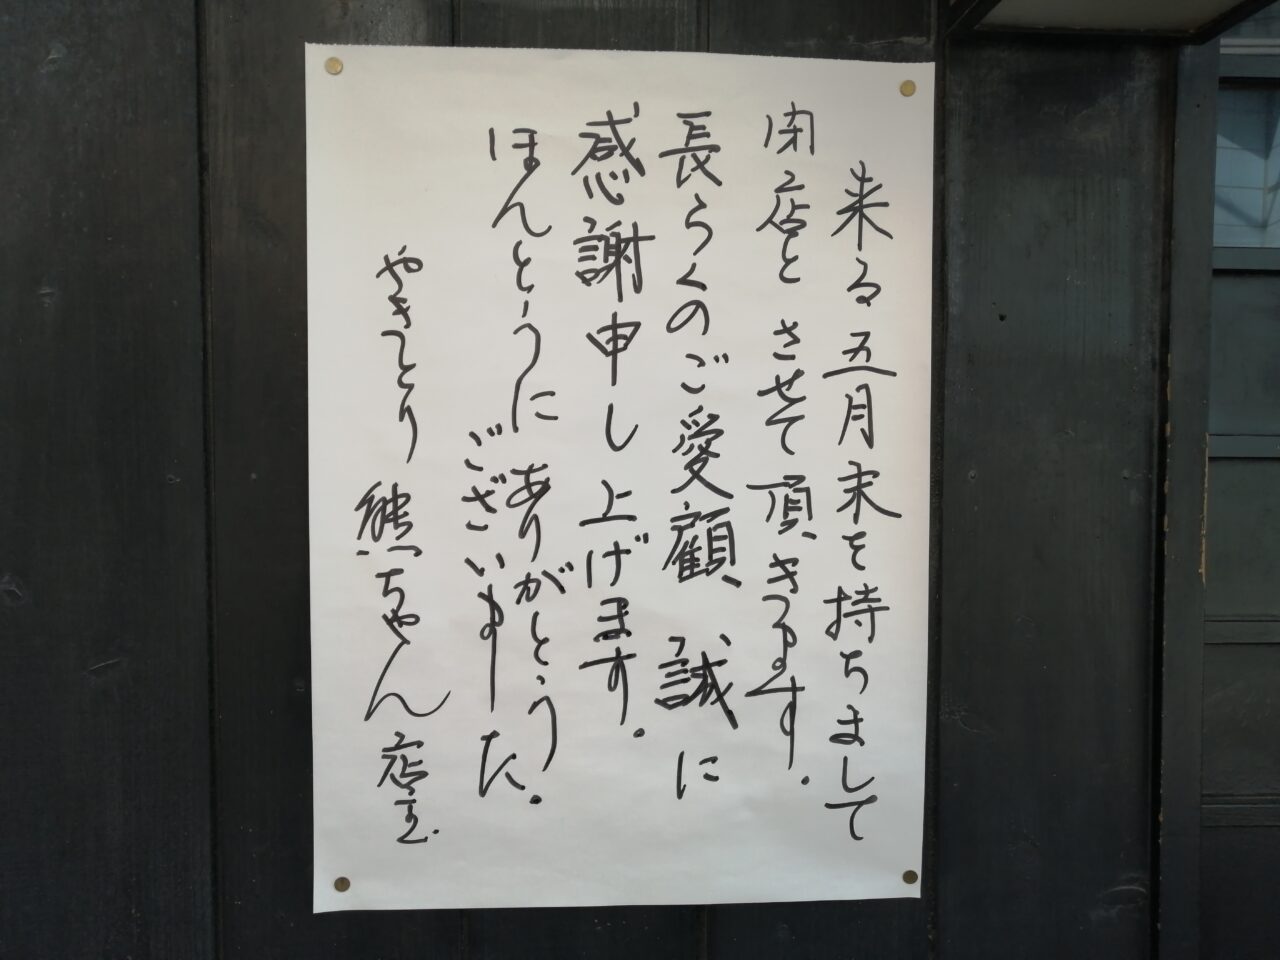 来る五月末を持ちまして
閉店とさせて頂きます.
長らくのご愛顧、誠に
感謝申し上げます.
ほんとうにありがとう
ございました.
やきとり 熊っちゃん 店主